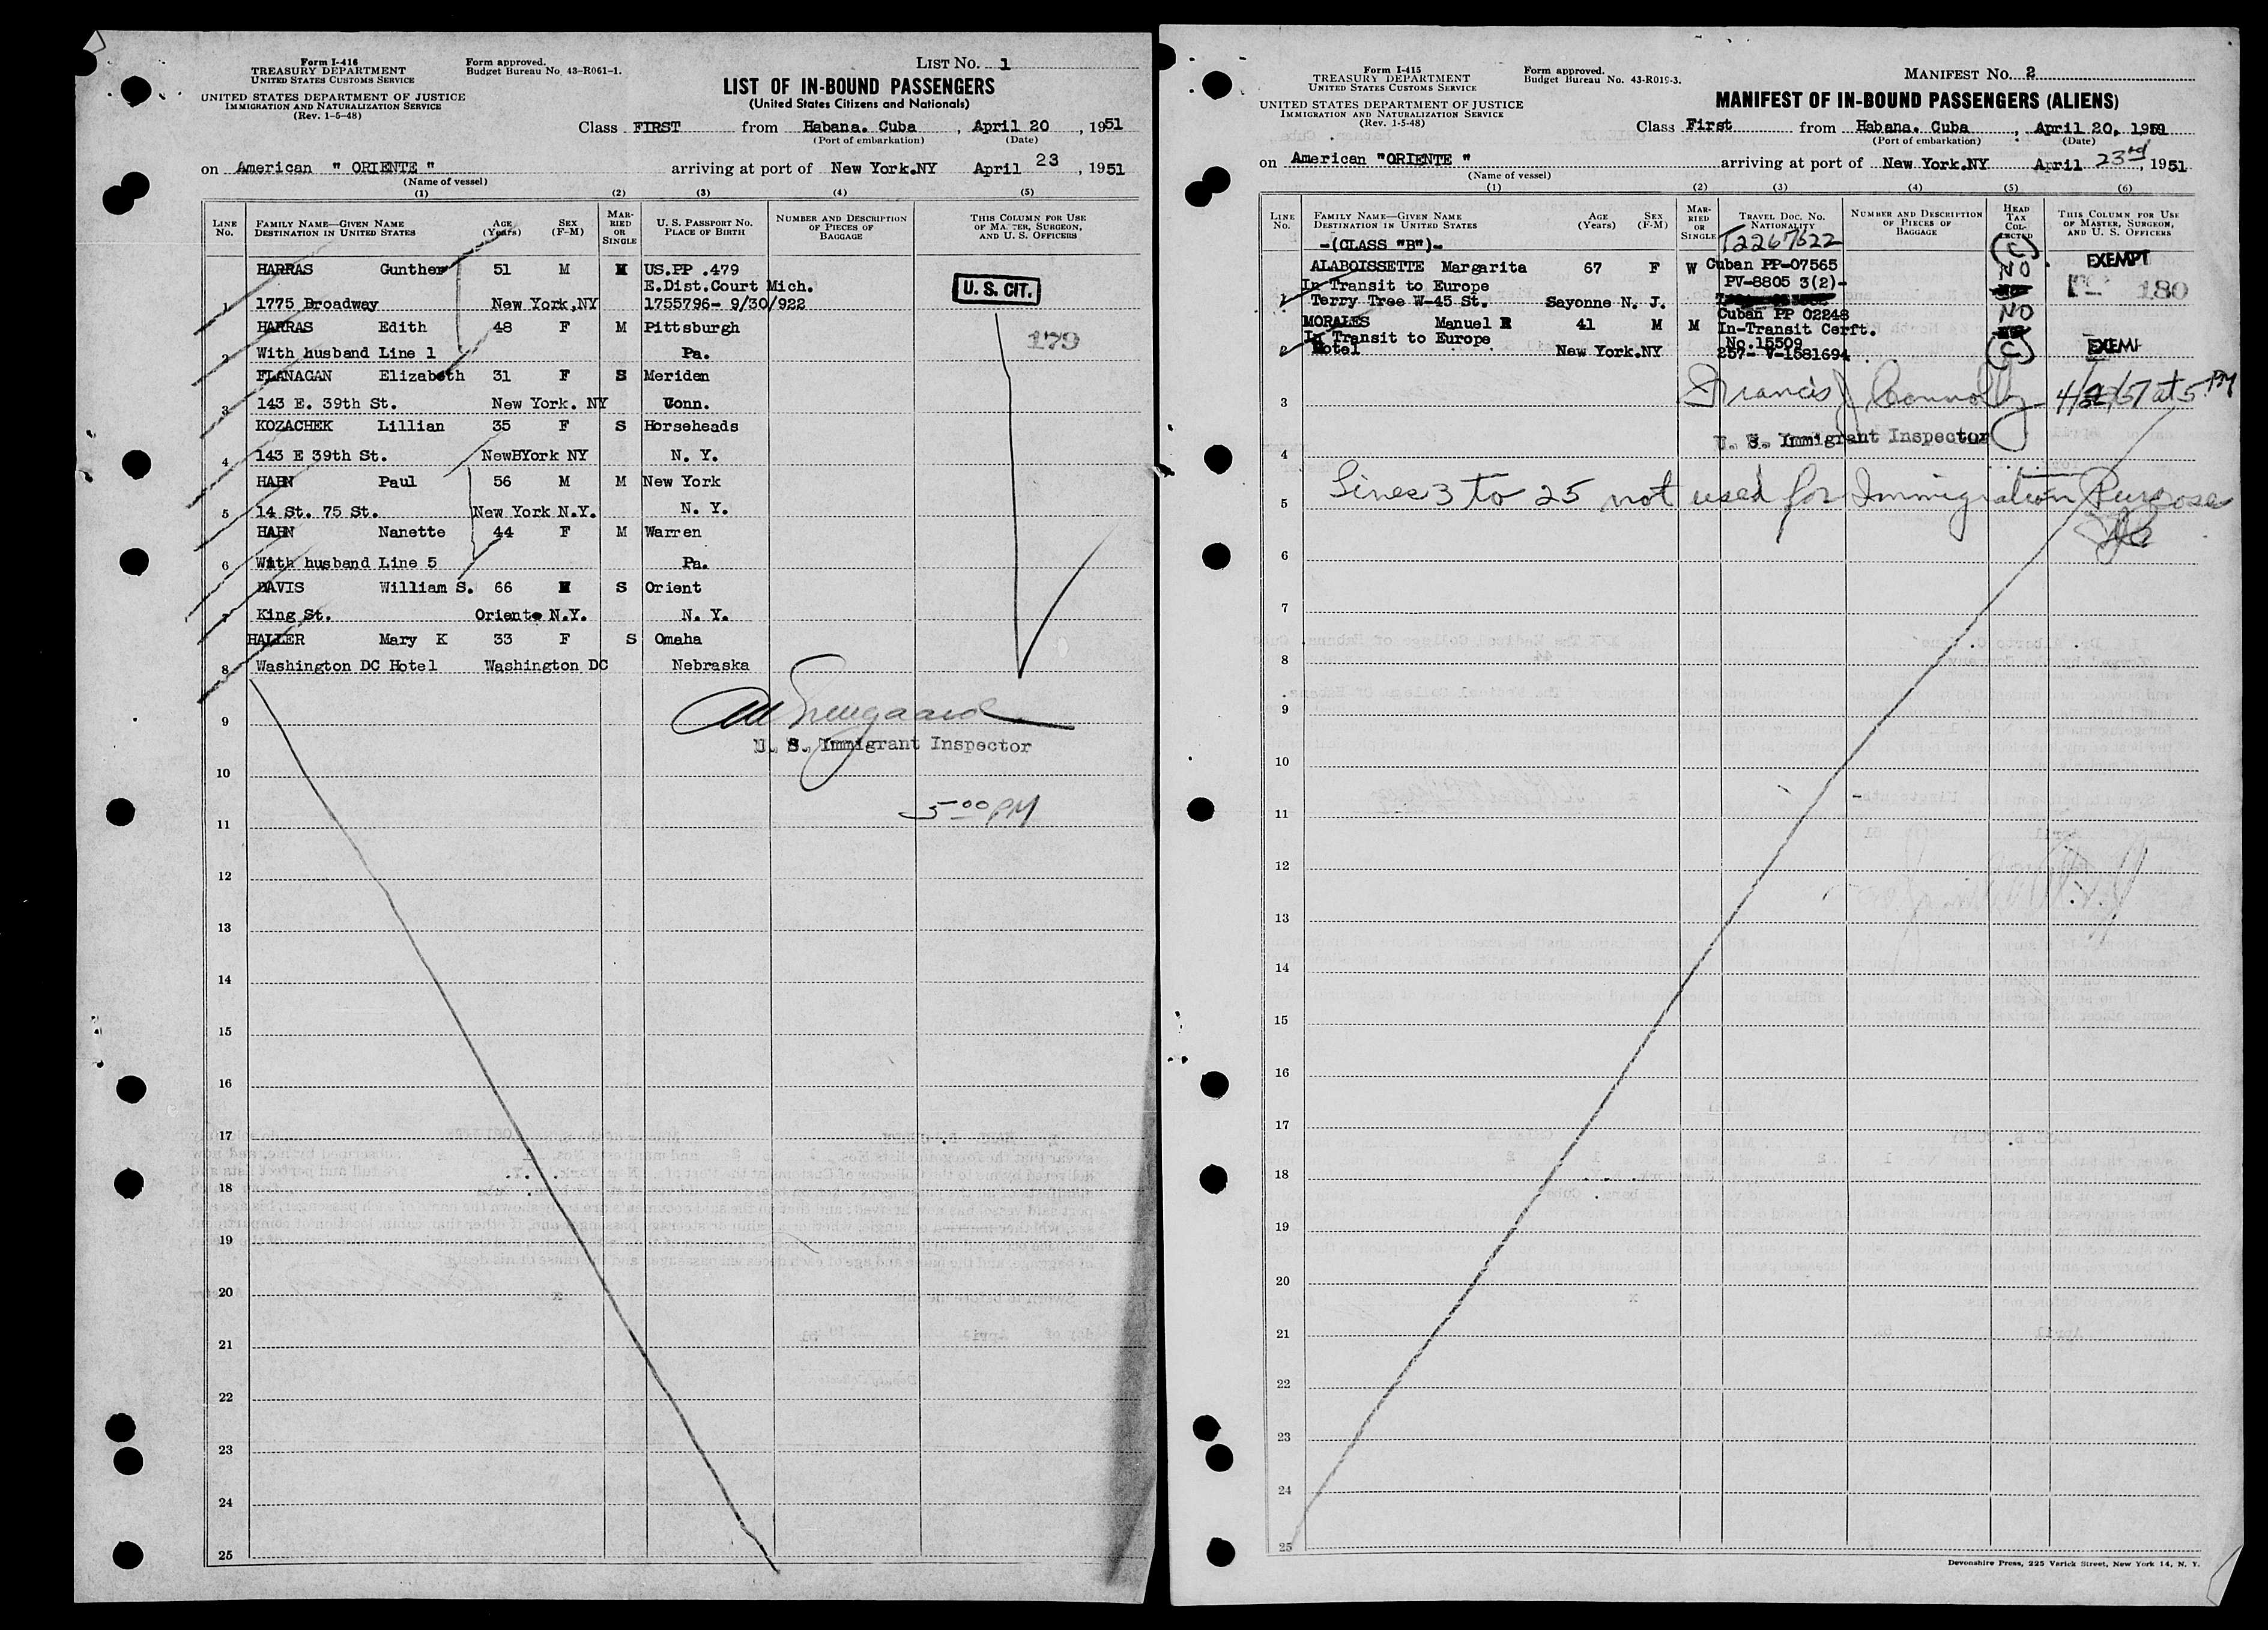 Form I-416
TREASURY DEPARTMENT
UNITED STATES CUSTOMS SERVICE
UNITED STATES DEPARTMENT OF JUSTICE
IMMIGRATION AND NATURALIZATION SERVICE
(Rev. 1-5-48)
Form approved.
Budget Bureau No. 43-R061-1.
LIST No. 1
LIST OF IN-BOUND PASSENGERS
(United States Citizens and Nationals)
Class FIRST from Habana. Cuba, April 20, 1951
(Port of embarkation) (Date)
on American " ORIENTE " arriving at port of New York.NY April 23, 1951
(Name of vessel)
(1) (2) (3) (4) (5)
LINE No. FAMILY NAME—GIVEN NAME DESTINATION IN UNITED STATES AGE (Years) SEX (F-M) MARRIED OR SINGLE U. S. PASSPORT No. PLACE OF BIRTH NUMBER AND DESCRIPTION OF PIECES OF BAGGAGE THIS COLUMN FOR USE OF MASTER, SURGEON, AND U. S. OFFICERS
HARRAS Gunther 51 M M US.PP .479
E.Dist.Court Mich.
1 1775 Broadway New York,NY 1755796- 9/30/922
U. S. CIT.
HARRAS Edith 48 F M Pittsburgh
179
2 With husband Line 1 Pa.
FLANAGAN Elizabeth 31 F S Meriden
3 143 E. 39th St. New York. NY Conn.
KOZACHEK Lillian 35 F S Horseheads
4 143 E 39th St. NewBYork NY N. Y.
HAHN Paul 56 M M New York
5 14 St. 75 St. New York N.Y. N. Y.
HAHN Nanette 44 F M Warren
6 With husband Line 5 Pa.
DAVIS William S. 66 M S Orient
7 King St. Oriente N.Y. N. Y.
HALLER Mary K 33 F S Omaha
8 Washington DC Hotel Washington DC Nebraska
9
U. S. Immigrant Inspector
10
5:00 PM
11
12
13
14
15
16
17
18
19
20
21
22
23
24
25
Form I-415
TREASURY DEPARTMENT
UNITED STATES CUSTOMS SERVICE
UNITED STATES DEPARTMENT OF JUSTICE
IMMIGRATION AND NATURALIZATION SERVICE
(Rev. 1-5-48)
Form approved.
Budget Bureau No. 43-R019-3.
MANIFEST No. 2
MANIFEST OF IN-BOUND PASSENGERS (ALIENS)
Class First from Habana. Cuba, April 20, 1951
(Port of embarkation) (Date)
on American "ORIENTE " arriving at port of New York.NY April 23rd, 1951
(Name of vessel)
(1) (2) (3) (4) (5) (6)
LINE No. FAMILY NAME—GIVEN NAME DESTINATION IN UNITED STATES AGE (Years) SEX (F-M) MARRIED OR SINGLE TRAVEL DOC. No. NATIONALITY NUMBER AND DESCRIPTION OF PIECES OF BAGGAGE HEAD TAX COLLECTED THIS COLUMN FOR USE OF MASTER, SURGEON, AND U. S. OFFICERS
-(CLASS "B")- T2267622
ALABOISSETTE Margarita 67 F W Cuban PP-07565 (C) NO EXEMPT
In Transit to Europe PV-8805 3(2)- 180
1 Terry Tree W-45 St. Sayonne N. J.
MORALES Manuel R 41 M M Cuban PP 02248 NO
In Transit to Europe In-Transit Cerft. No.15509
2 Hotel New York.NY 257- V-1581694 (C) EXEM
3 Francis J Connolly at 5 PM
U. S. Immigrant Inspector
4
5 Lines 3 to 25 not used for Immigration Purposes
6
7
8
9
10
11
12
13
14
15
16
17
18
19
20
21
22
23
24
25
Devonshire Press, 225 Varick Street, New York 14, N. Y.